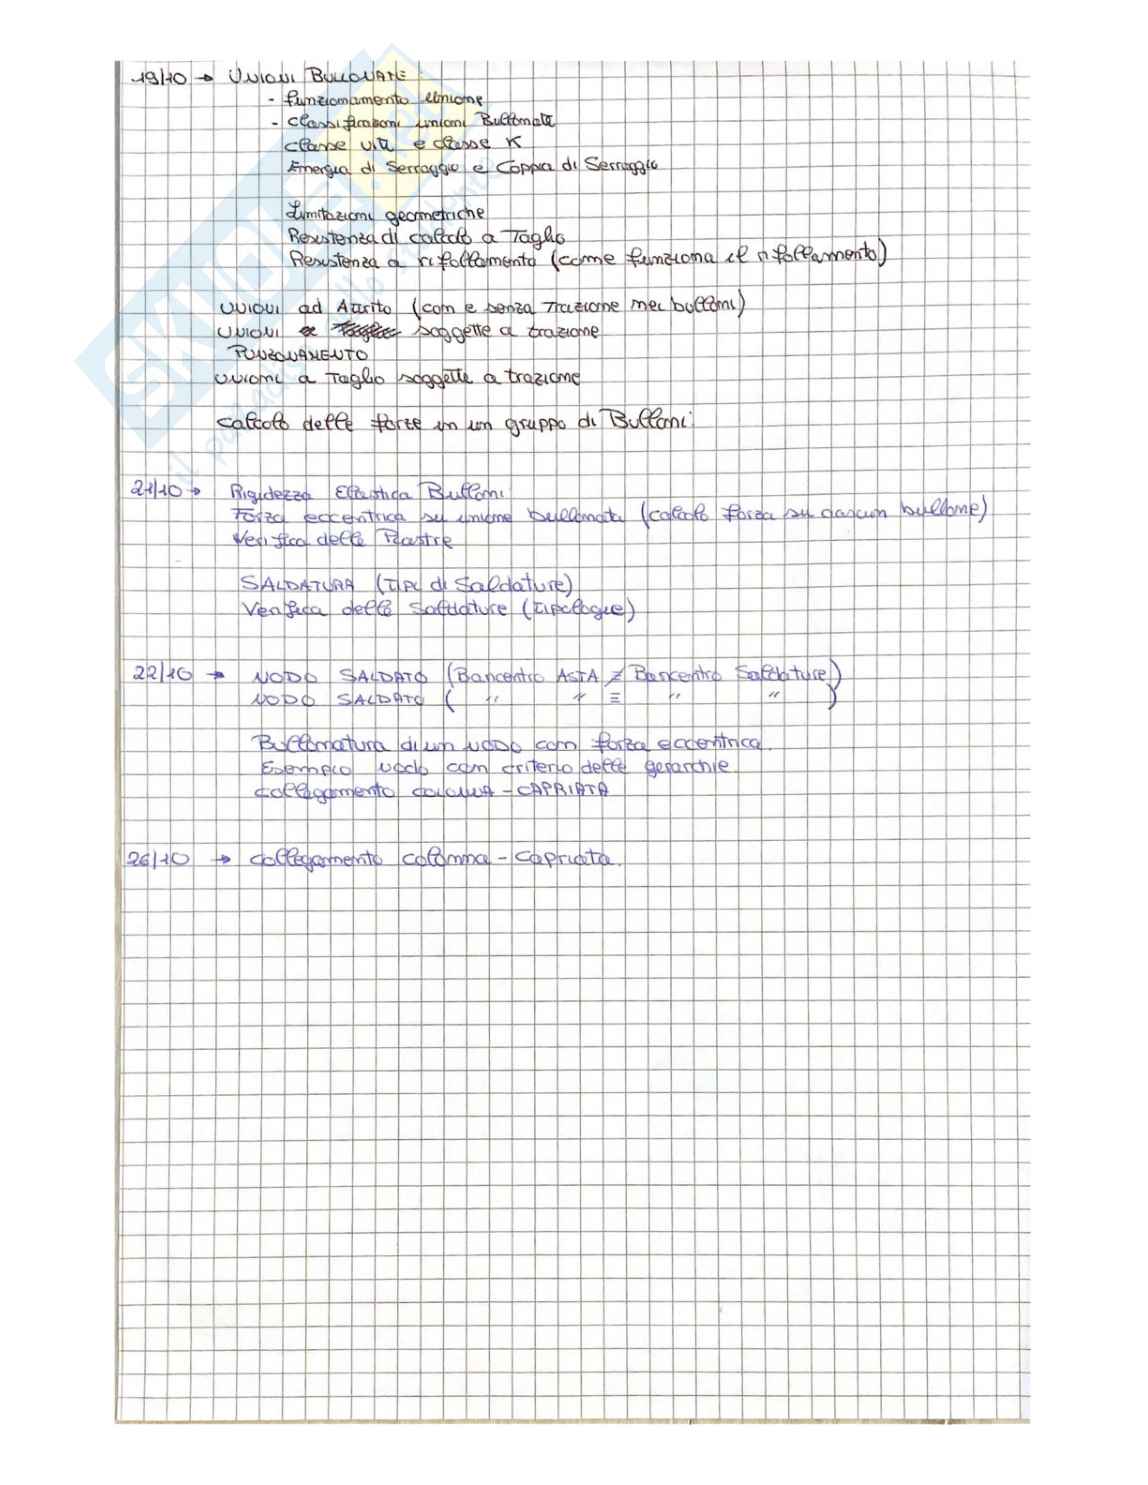 19/10 → UNIONI BULLONATE
- funzionamento unione
- classificazioni unioni Bullonate
classe viti e classe K
Energia di Serraggio e Coppia di Serraggio
Limitazioni geometriche
Resistenza di calcolo a Taglio
Resistenza a rifollamento (come funziona il rifollamento)
UNIONI ad Attrito (con e senza Trazione nei bulloni)
UNIONI soggette a trazione
PUNZONAMENTO
UNIONI a Taglio soggette a trazione
Calcolo delle forze in un gruppo di Bulloni
21/10 → Rigidezza Elastica Bulloni
Forza eccentrica su unione bullonata (calcolo forza su ciascun bullone)
Verifica delle Piastre
SALDATURA (Tipi di Saldature)
Verifica delle Saldature (tipologie)
22/10 → NODO SALDATO (Baricentro ASTA ≠ Baricentro Saldature)
NODO SALDATO ( " " ≡ " " )
Bullonatura di un NODO con forza eccentrica
Esempio nodo con criterio delle gerarchie
Collegamento COLONNA - CAPRIATA
26/10 → Collegamento colonna - capriata.